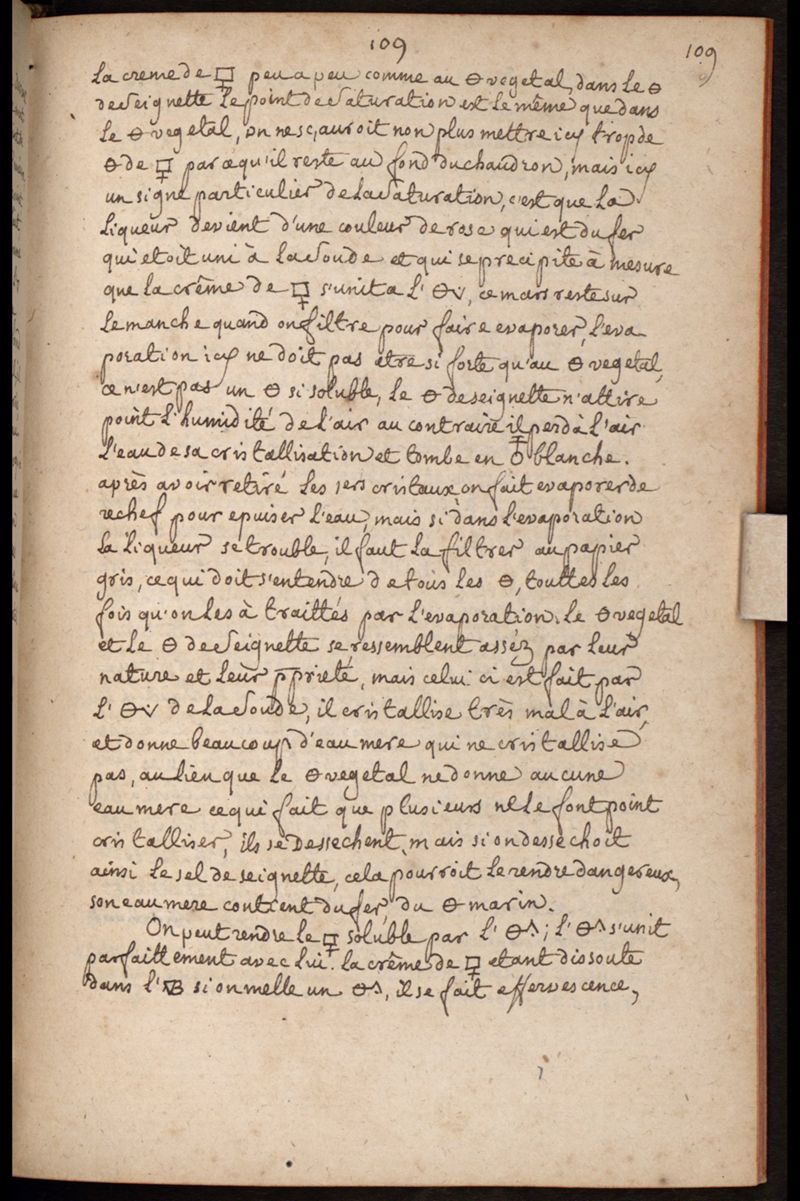 109
109
la creme de 🜿 peu a peu comme au 🜔 vegetal, dans le 🜔
de Seignette le point de Saturation est le même que dans
le 🜔 vegetal, on ne sçauroit non plus mettre icy trop de
🜔 de 🜿 parcequ'il reste au fond du chaudron, mais icy
un signe particulier de la Saturation, c'est que la
liqueur devient d'une couleur de rose qui est du fer
qui etoit uni à la Soude et qui se precipite à mesure
que la crême de 🜿 s'unit a l'🜔v, ce mars reste sur
le manche quand on filtre pour faire evaporer, l'eva
poration icy ne doit pas être si forte qu'au 🜔 vegetal,
ce n'est pas un 🜔 si soluble, le 🜔 de seignette n'attire
point l'humidité de l'air au contraire il perd à l'air
l'eau de sa cristallisation et tombe en ♁ blanche.
après avoir retiré les 1ers cristaux, on fait evaporer de
rechef pour epuiser l'eau, mais si dans l'evaporation
la liqueur se trouble, il faut la filtrer au papier
gris, ce qui doit s'entendre de tous les 🜔, touttes les
fois qu'on les à traittés par l'evaporation. le 🜔 vegetal
et le 🜔 de Seignette se ressemblent asséz par leur
nature et leur pprieté, mais celui ci est fait par
l'🜔v de la Soude, il cristallise très mal à l'air,
et donne beaucoup d'eau mere qui ne cristallise
pas, au lieu que le 🜔 vegetal ne donne aucune
eau mere ce qui fait que plusieurs ne le font point
cristalliser, ils se dessechent, mais si on dessechoit
ainsi le sel de seignette, cela pourroit le rendre dangereux,
son eau mere contient du fer, du 🜔 marin.
On peut rendre le 🜿 soluble par l'🜔^; l'🜔^ s'unit
parfaittement avec lui. la crême de 🜿 etant dissoute
dans l'🜄B si on melle un 🜔^, il se fait effervescence,